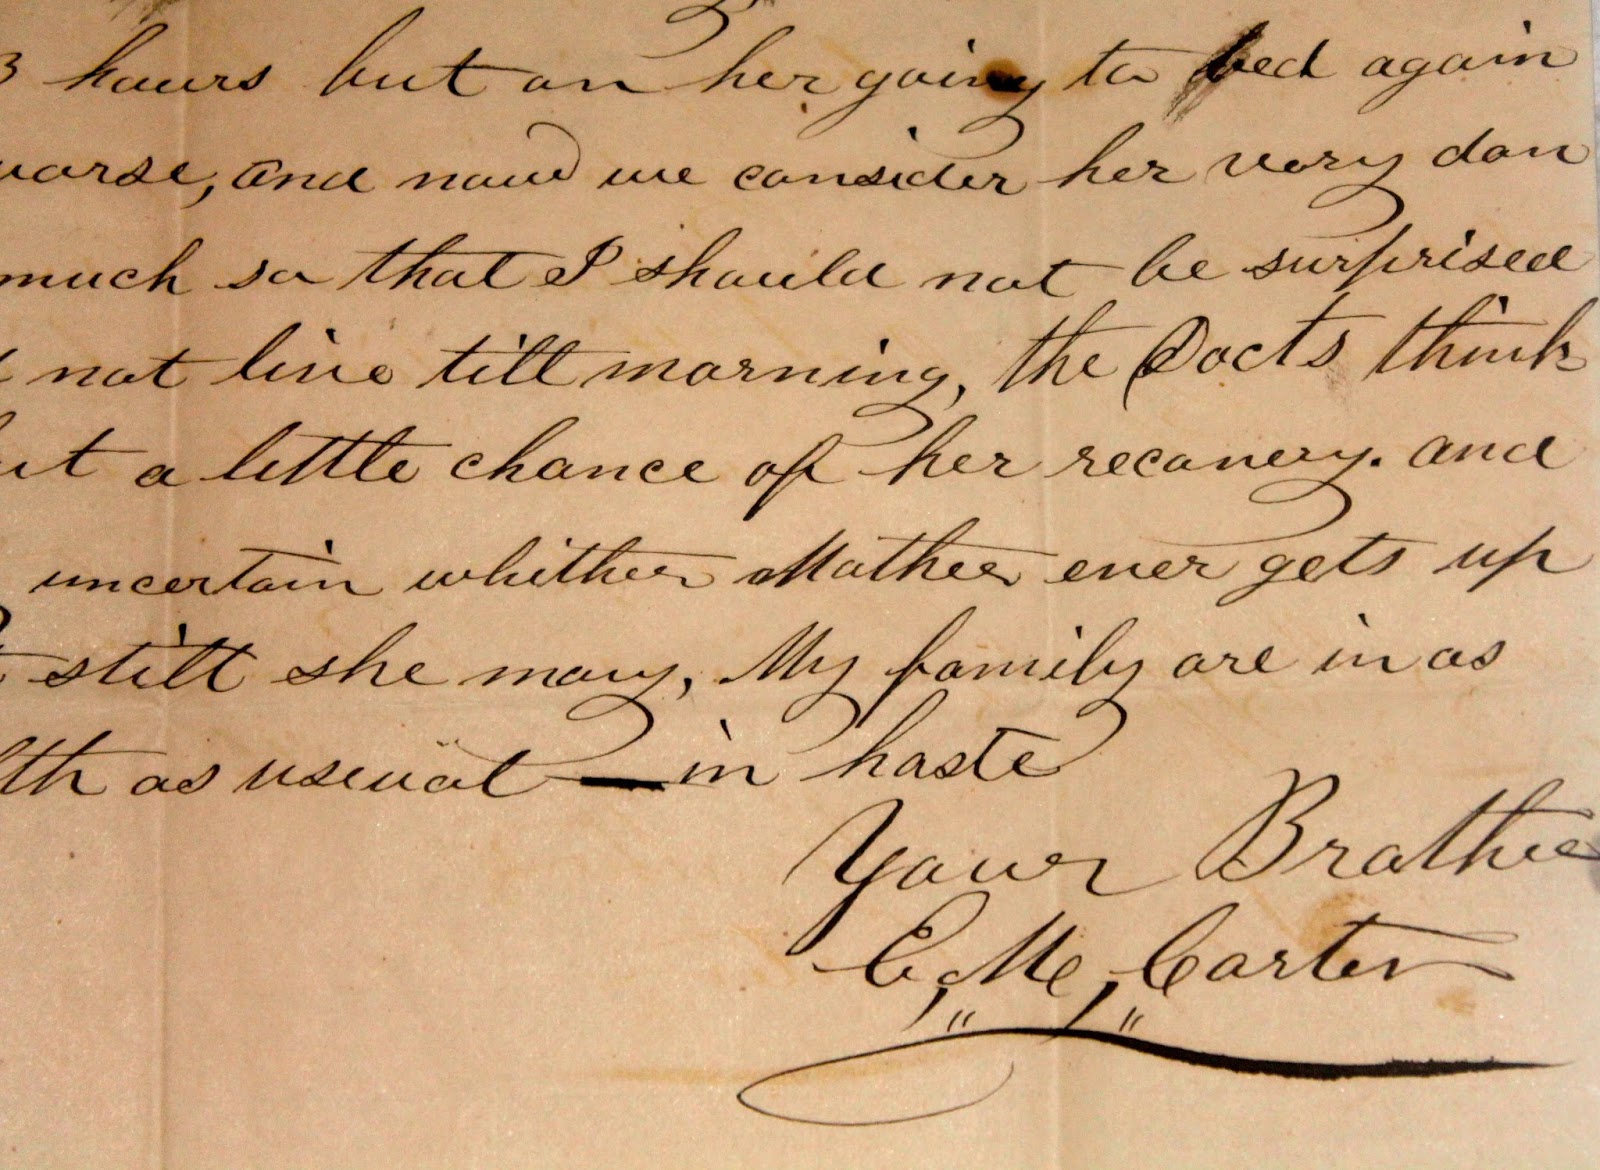 3 hours but on her going to bed again
worse, and now we consider her very dan
much so that I should not be surprised
not live till morning, the Doct's think
but a little chance of her recovery. and
uncertain whither Mother ever gets up
still she may, My family are in as
lth as useual — in haste
Your Brother
C, M, Carter